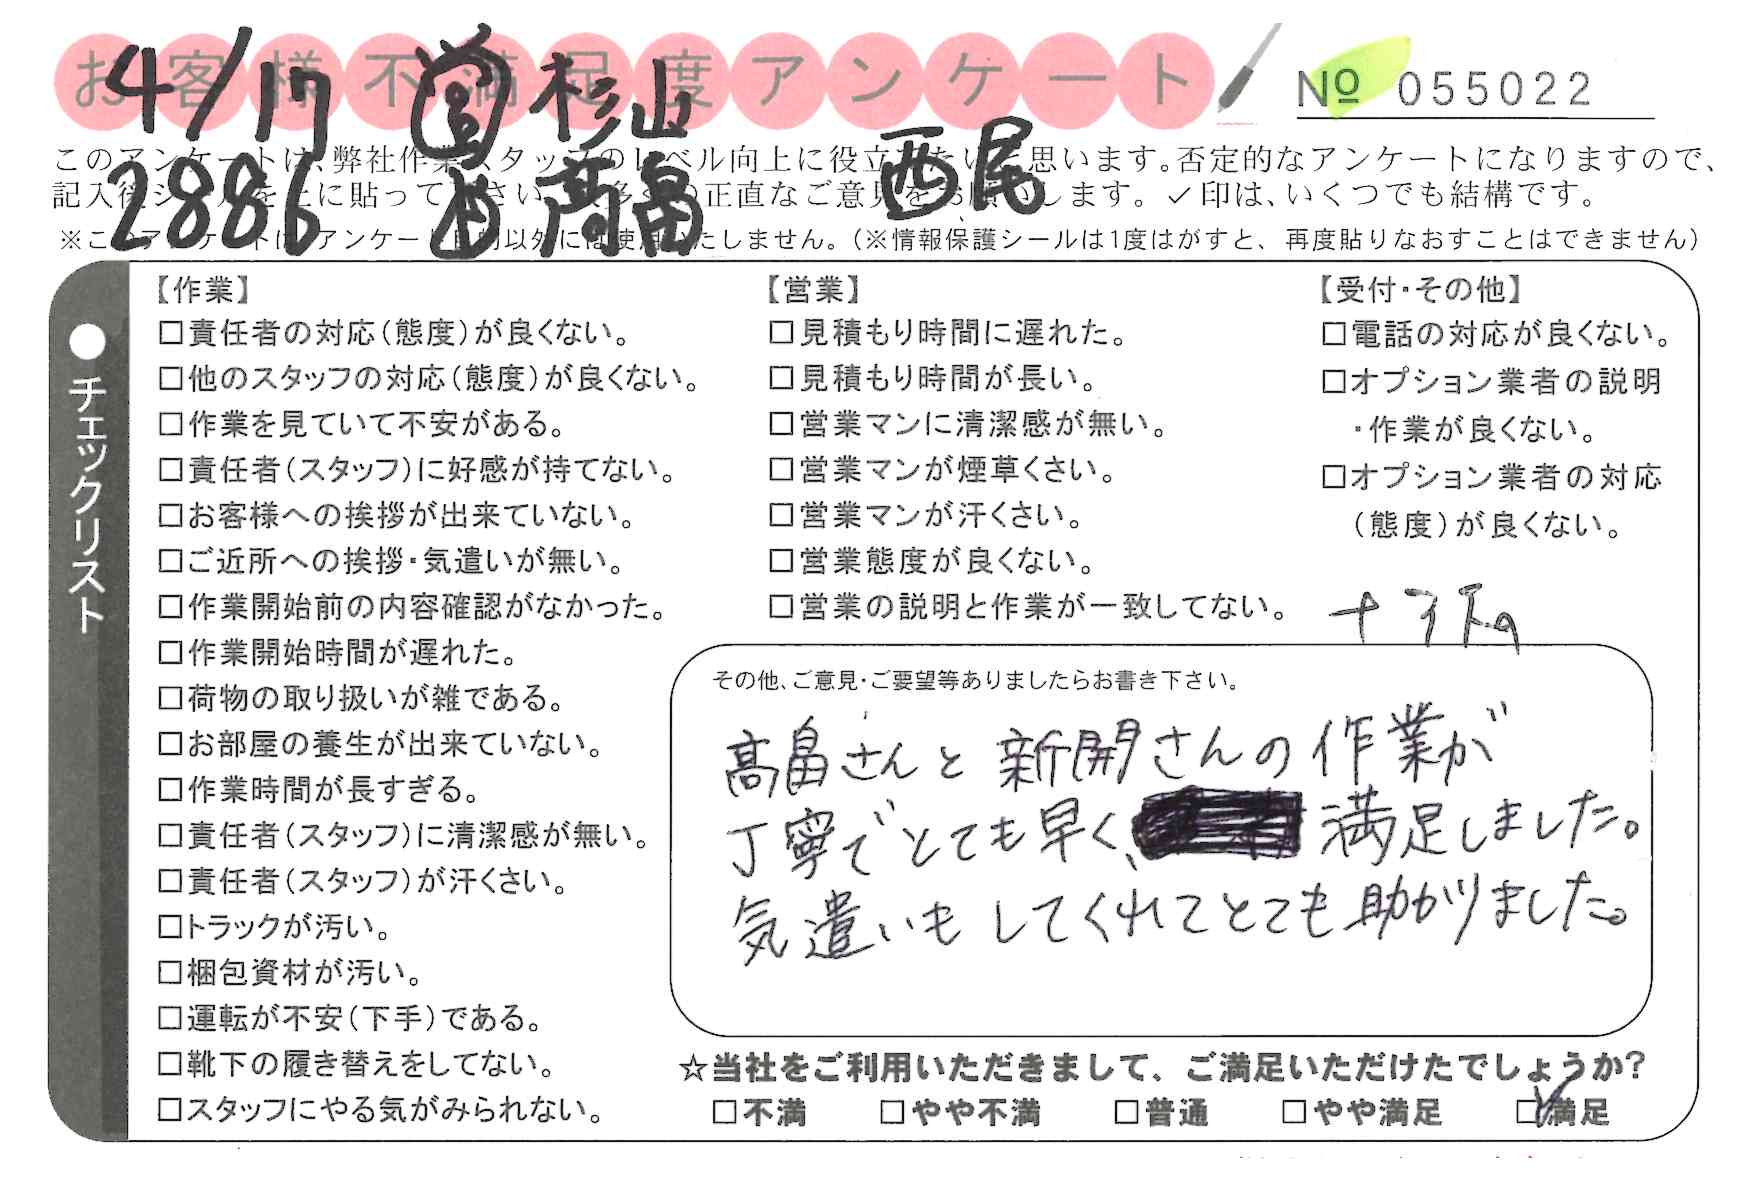 お客様不満足度アンケート
№ 055022
4/17 営 杉山
2886 高畠 西尾
このアンケートは、弊社作業スタッフのレベル向上に役立てたいと思います。否定的なアンケートになりますので、
記入後シールを上に貼って下さい。数多くの正直なご意見をお願いします。✓印は、いくつでも結構です。
※このアンケートはアンケート目的以外には使用いたしません。(※情報保護シールは1度はがすと、再度貼りなおすことはできません)
●チェックリスト
【作業】
□責任者の対応(態度)が良くない。
□他のスタッフの対応(態度)が良くない。
□作業を見ていて不安がある。
□責任者(スタッフ)に好感が持てない。
□お客様への挨拶が出来ていない。
□ご近所への挨拶・気遣いが無い。
□作業開始前の内容確認がなかった。
□作業開始時間が遅れた。
□荷物の取り扱いが雑である。
□お部屋の養生が出来ていない。
□作業時間が長すぎる。
□責任者(スタッフ)に清潔感が無い。
□責任者(スタッフ)が汗くさい。
□トラックが汚い。
□梱包資材が汚い。
□運転が不安(下手)である。
□靴下の履き替えをしてない。
□スタッフにやる気がみられない。
【営業】
□見積もり時間に遅れた。
□見積もり時間が長い。
□営業マンに清潔感が無い。
□営業マンが煙草くさい。
□営業マンが汗くさい。
□営業態度が良くない。
□営業の説明と作業が一致してない。
【受付・その他】
□電話の対応が良くない。
□オプション業者の説明
・作業が良くない。
□オプション業者の対応
(態度)が良くない。
その他、ご意見・ご要望等ありましたらお書き下さい。
高畠さんと新開さんの作業が
丁寧でとても早く、満足しました。
気遣いもしてくれてとても助かりました。
☆当社をご利用いただきまして、ご満足いただけたでしょうか?
□不満 □やや不満 □普通 □やや満足 ☑満足